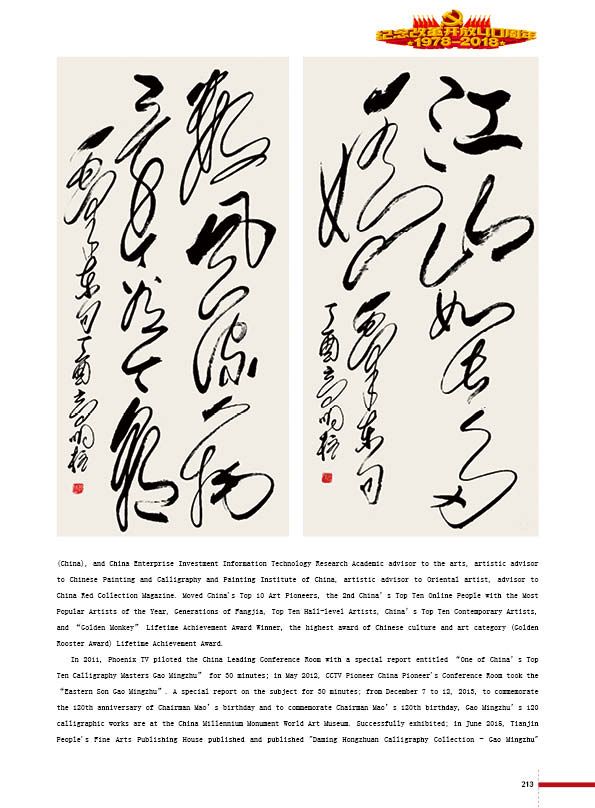 纪念改革开放40周年
★1978-2018★
江山如此多
嬌
毛泽东句
丁酉高明柱
數風流人物
還看今朝
毛泽东句丁酉高明柱
(China), and China Enterprise Investment Information Technology Research Academic advisor to the arts, artistic advisor
to Chinese Painting and Calligraphy and Painting Institute of China, artistic advisor to Oriental artist, advisor to
China Red Collection Magazine. Moved China's Top 10 Art Pioneers, the 2nd China’s Top Ten Online People with the Most
Popular Artists of the Year, Generations of Fangjia, Top Ten Hall-level Artists, China’s Top Ten Contemporary Artists,
and “Golden Monkey” Lifetime Achievement Award Winner, the highest award of Chinese culture and art category (Golden
Rooster Award) Lifetime Achievement Award.
In 2011, Phoenix TV piloted the China Leading Conference Room with a special report entitled “One of China’s Top
Ten Calligraphy Masters Gao Mingzhu” for 30 minutes; in May 2012, CCTV Pioneer China Pioneer's Conference Room took the
“Eastern Son Gao Mingzhu”. A special report on the subject for 30 minutes; from December 7 to 12, 2013, to commemorate
the 120th anniversary of Chairman Mao’s birthday and to commemorate Chairman Mao’s 120th birthday, Gao Mingzhu’s 120
calligraphic works are at the China Millennium Monument World Art Museum. Successfully exhibited; in June 2015, Tianjin
People's Fine Arts Publishing House published and published "Daming Hongzhuan Calligraphy Collection - Gao Mingzhu"
213